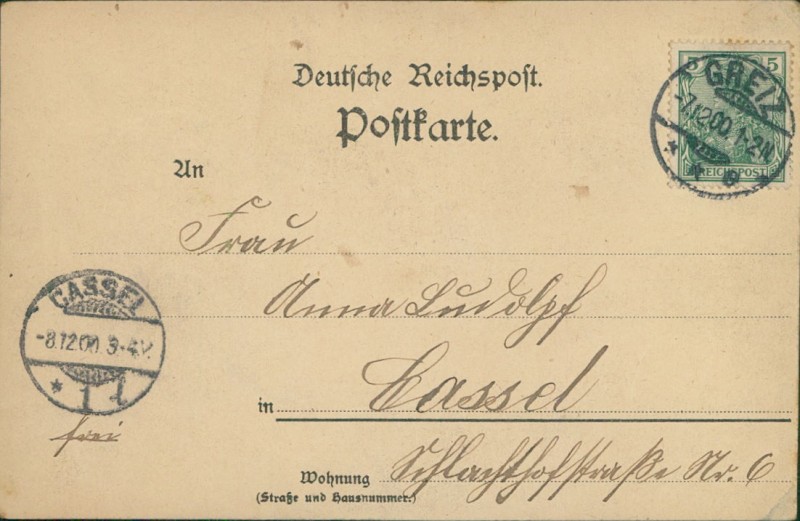 Deutsche Reichspost.
Postkarte.
5 5
GREIZ
-7.12.00. 1-2N.
REICHSPOST
An
Frau
Anna Ludolph
in Cassel
CASSEL
-8.12.00. 3-4V.
* 1 l
frei
Wohnung Schlachthofstraße Nr. 6
(Straße und Hausnummer.)